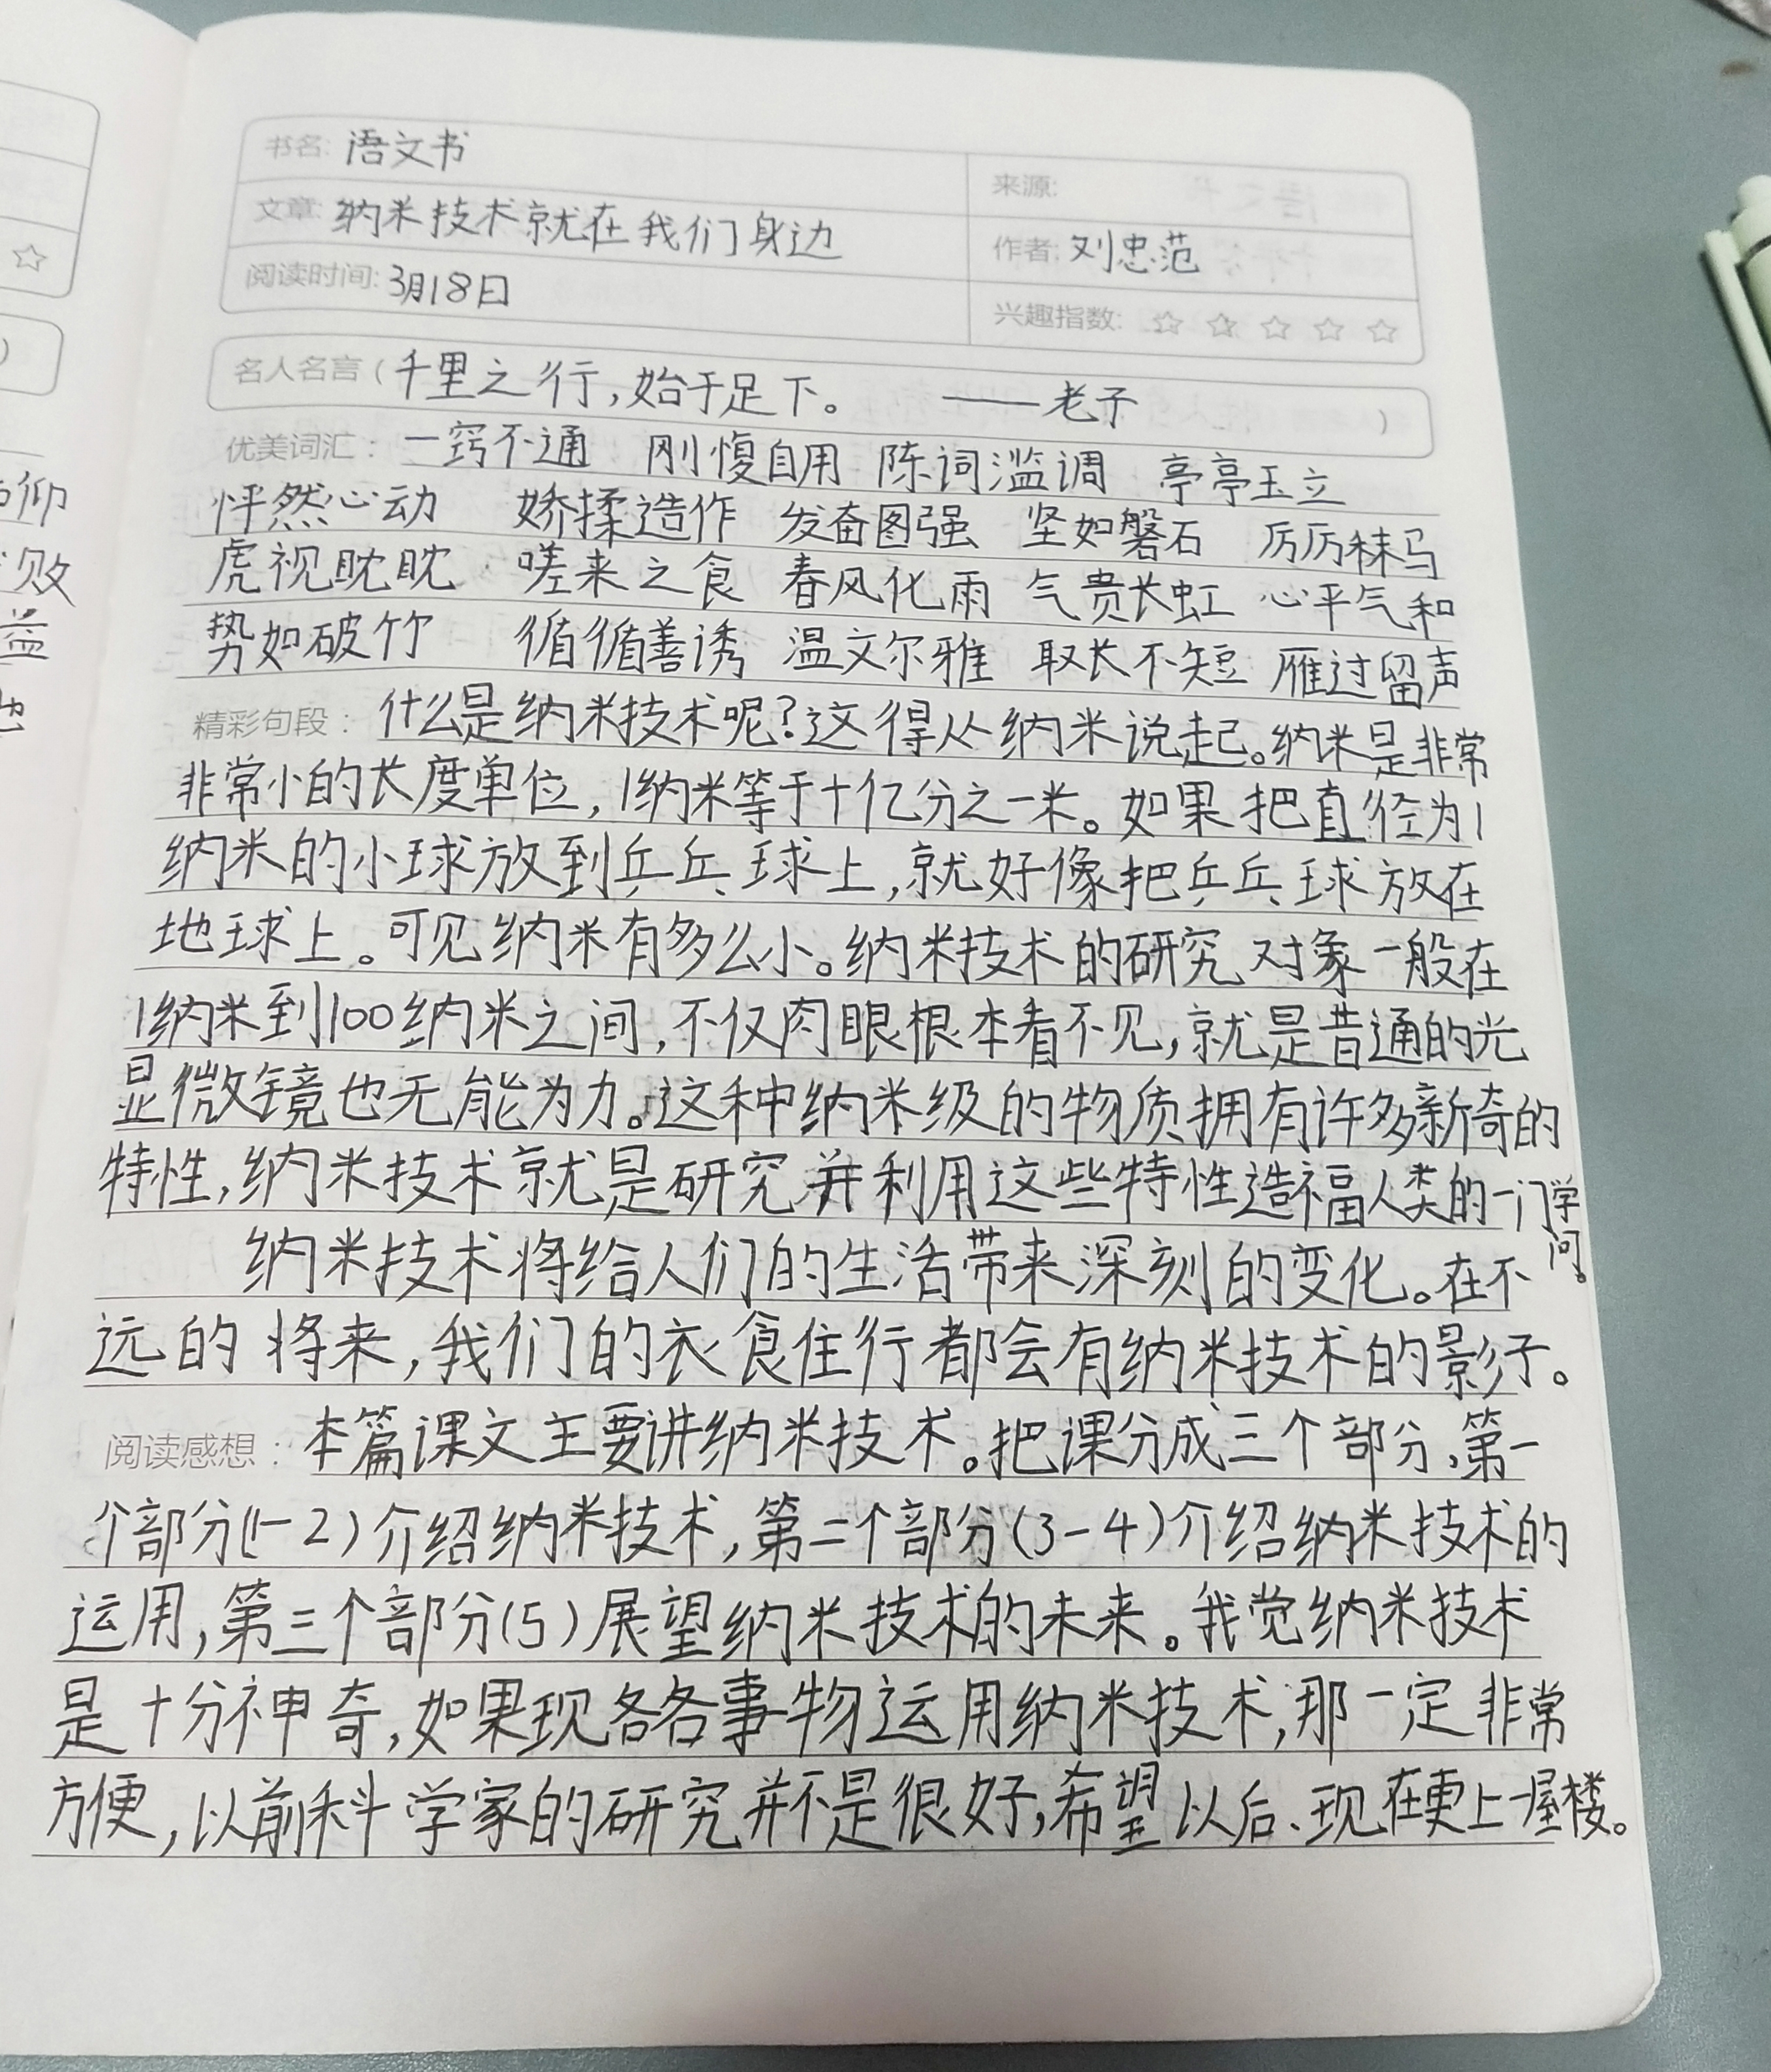 书名: 语文书
来源:
文章: 纳米技术就在我们身边
作者: 刘忠范
阅读时间: 3月18日
兴趣指数: ☆ ☆ ☆ ☆ ☆
名人名言 ( 千里之行,始于足下。 ——老子 )
优美词汇: 一窍不通 刚愎自用 陈词滥调 亭亭玉立
怦然心动 娇揉造作 发奋图强 坚如磐石 厉厉秣马
虎视眈眈 嗟来之食 春风化雨 气贵长虹 心平气和
势如破竹 循循善诱 温文尔雅 取长不短 雁过留声
精彩句段: 什么是纳米技术呢?这得从纳米说起。纳米是非常
非常小的长度单位,1纳米等于十亿分之一米。如果把直径为1
纳米的小球放到乒乓球上,就好像把乒乓球放在
地球上。可见纳米有多么小。纳米技术的研究对象一般在
1纳米到100纳米之间,不仅肉眼根本看不见,就是普通的光
显微镜也无能为力。这种纳米级的物质拥有许多新奇的
特性,纳米技术就是研究并利用这些特性造福人类的一门学
问。
纳米技术将给人们的生活带来深刻的变化。在不
远的将来,我们的衣食住行都会有纳米技术的影子。
阅读感想: 本篇课文主要讲纳米技术。把课分成三个部分,第一
个部分(1-2)介绍纳米技术,第二个部分(3-4)介绍纳米技术的
运用,第三个部分(5)展望纳米技术的未来。我觉纳米技术
是十分神奇,如果现各各事物运用纳米技术,那一定非常
方便,以前科学家的研究并不是很好,希望以后、现在更上一屋楼。
仰
败
益